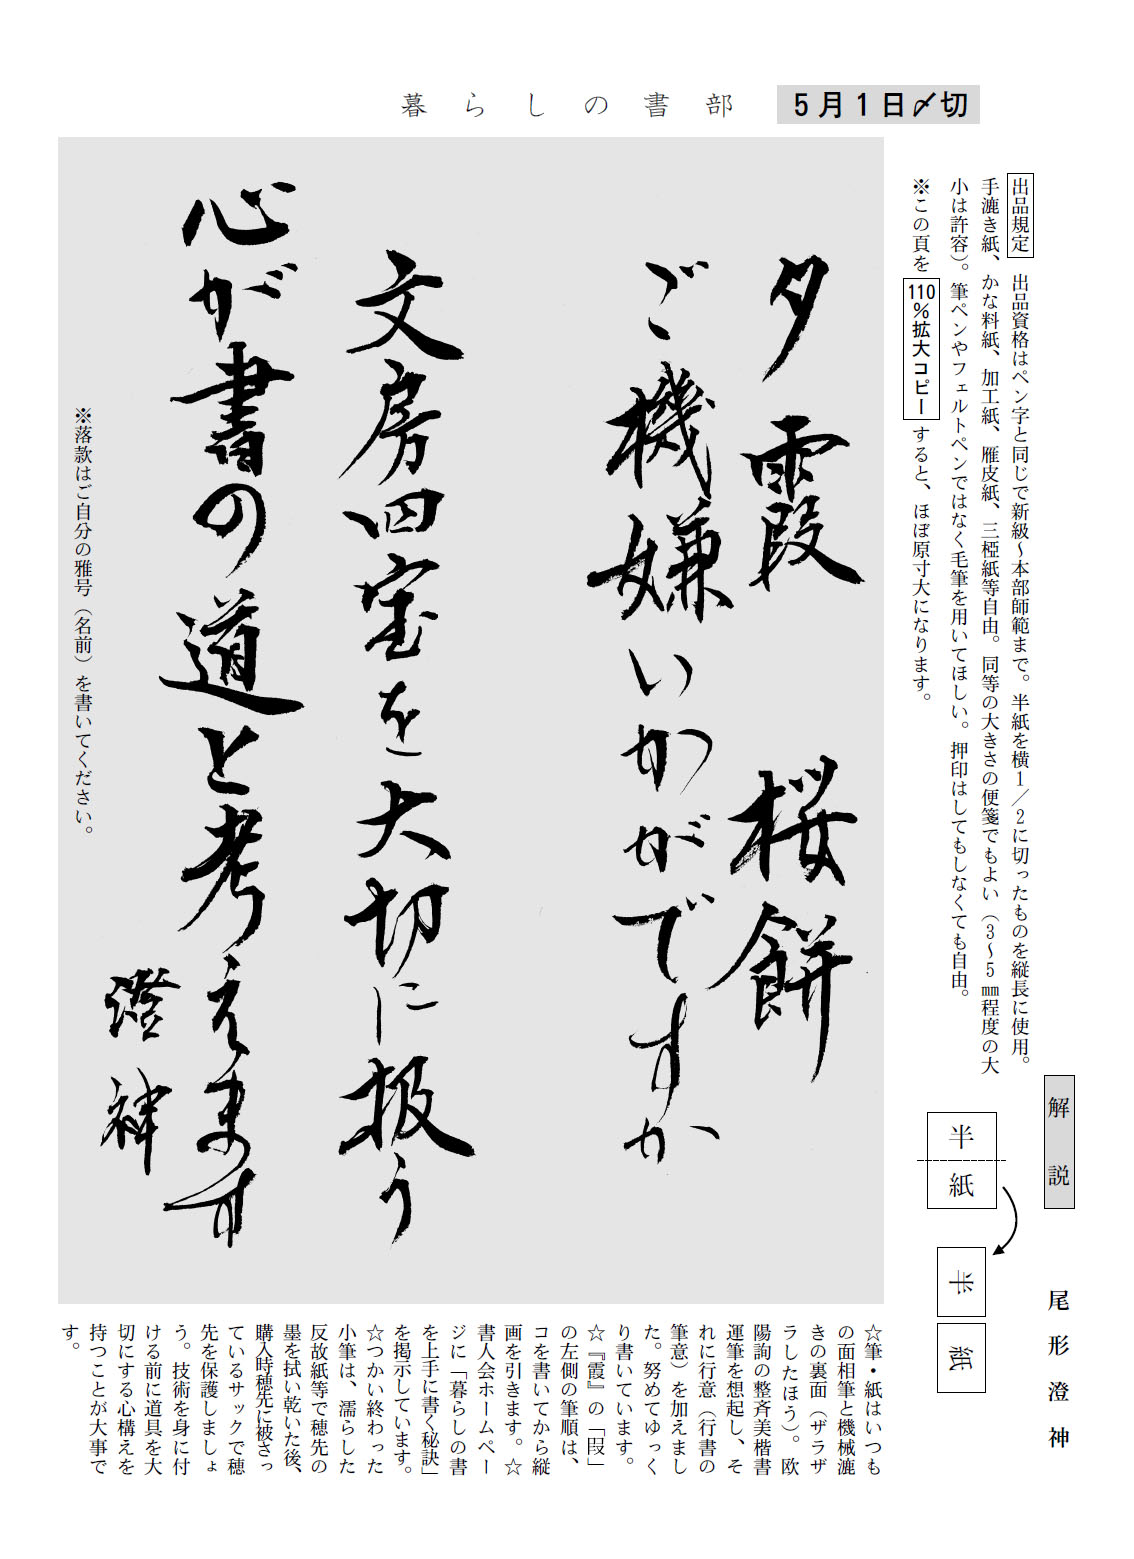 暮らしの書部
5月1日〆切
出品規定 出品資格はペン字と同じで新級～本部師範まで。半紙を横1／2に切ったものを縦長に使用。
手漉き紙、かな料紙、加工紙、雁皮紙、三椏紙等自由。同等の大きさの便箋でもよい（3～5㎜程度の大
小は許容）。筆ペンやフェルトペンではなく毛筆を用いてほしい。押印はしてもしなくても自由。
※この頁を110％拡大コピーすると、ほぼ原寸大になります。
夕霞 桜餅
ご機嫌いかがですか
文房四宝を大切に扱う
心が書の道と考えます
澄神
※落款はご自分の雅号（名前）を書いてください。
解説
尾形澄神
半
紙
半
紙
☆筆・紙はいつも
の面相筆と機械漉
きの裏面（ザラザ
ラしたほう）。欧
陽詢の整斉美楷書
運筆を想起し、そ
れに行意（行書の
筆意）を加えまし
た。努めてゆっく
り書いています。
☆『霞』の「叚」
の左側の筆順は、
コを書いてから縦
画を引きます。☆
書人会ホームペー
ジに「暮らしの書
を上手に書く秘訣」
を掲示しています。
☆つかい終わった
小筆は、濡らした
反故紙等で穂先の
墨を拭い乾いた後、
購入時穂先に被さっ
ているサックで穂
先を保護しましょ
う。技術を身に付
ける前に道具を大
切にする心構えを
持つことが大事で
す。